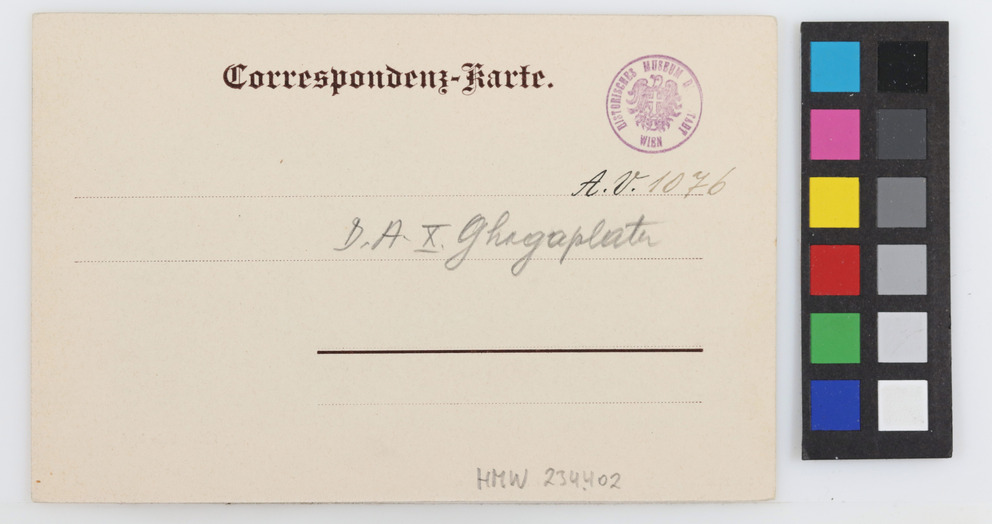 Correspondenz-Karte.
HISTORISCHES MUSEUM D STADT
WIEN
A.V. 1076
X.
HMW 234402